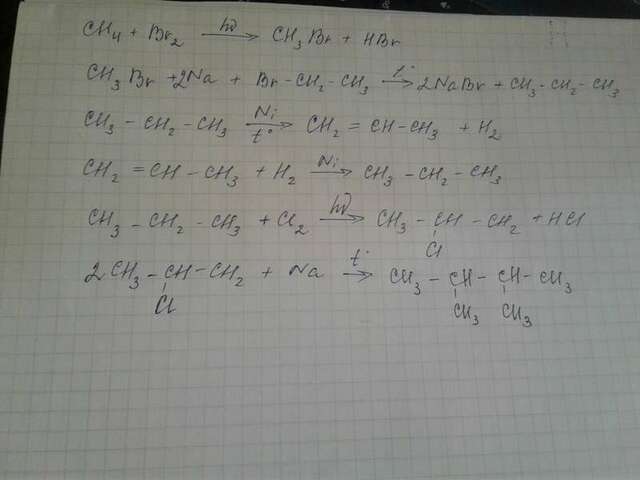 CH₄ + Br₂ —hν→ CH₃Br + HBr
CH₃Br + 2Na + Br – CH₂ – CH₃ —t→ 2NaBr + CH₃ – CH₂ – CH₃
CH₃ – CH₂ – CH₃ —Ni t°→ CH₂ = CH – CH₃ + H₂
CH₂ = CH – CH₃ + H₂ —Ni→ CH₃ – CH₂ – CH₃
CH₃ – CH₂ – CH₃ + Cl₂ —hν→ CH₃ – CH – CH₂ + HCl
Cl
2CH₃ – CH – CH₂ + Na —t→ CH₃ – CH – CH – CH₃
Cl CH₃ CH₃